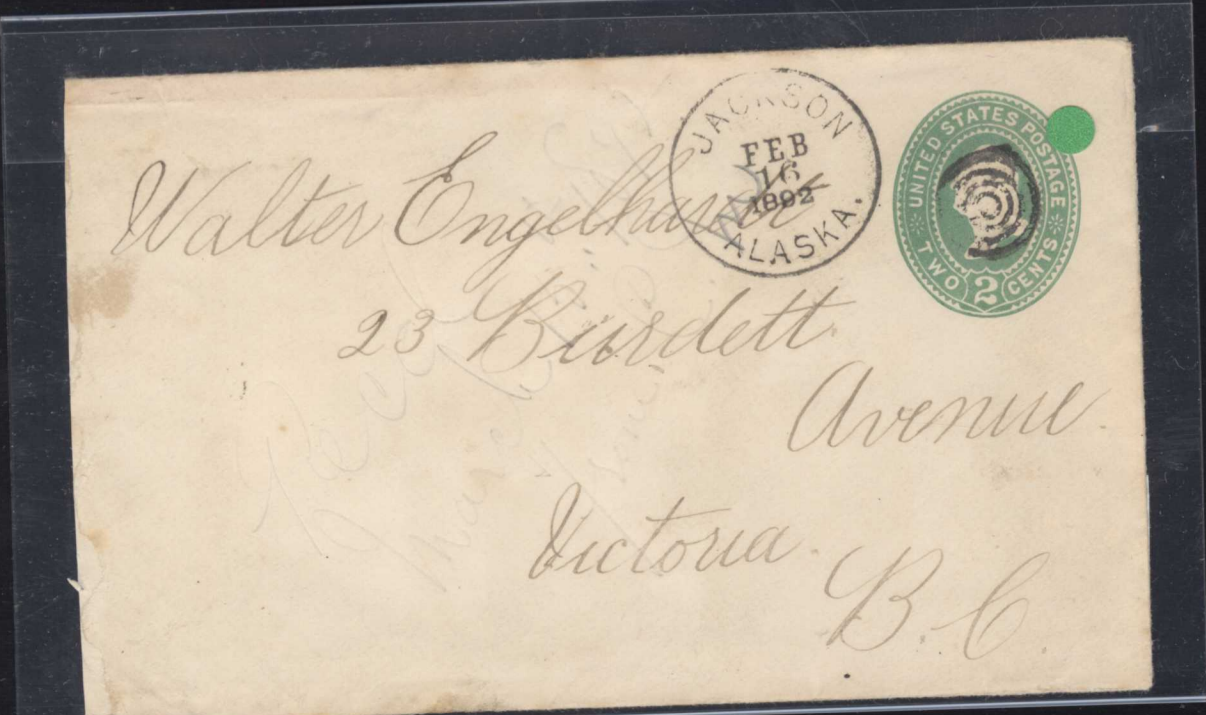 JACKSON
FEB
16
1892
ALASKA.
UNITED STATES POSTAGE
TWO 2 CENTS
Walter Engelhardt
23 Burdett
Avenue.
Victoria.
B.C.